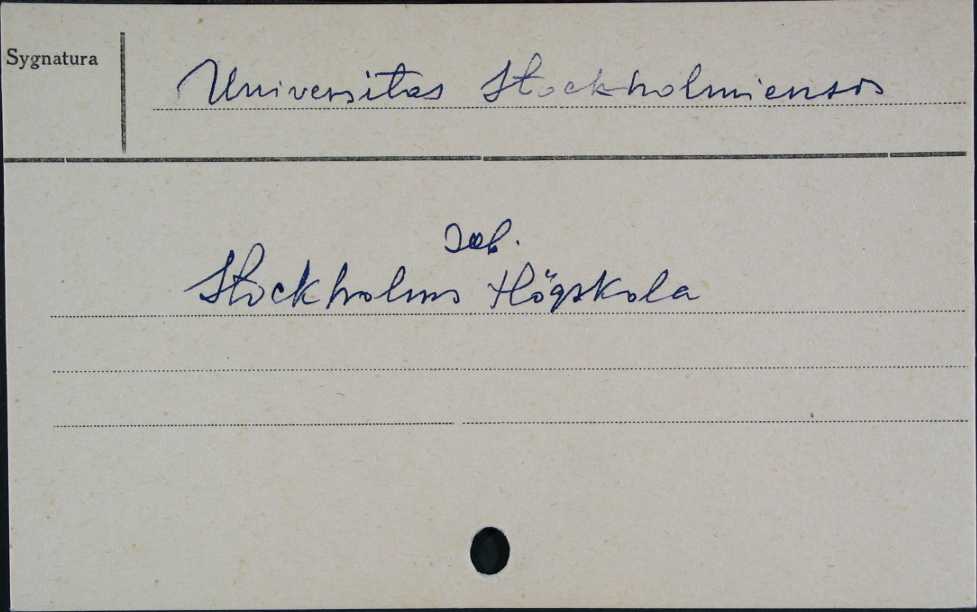 Sygnatura
Universitas Stockholmiensis
zob.
Stockholms Högskola